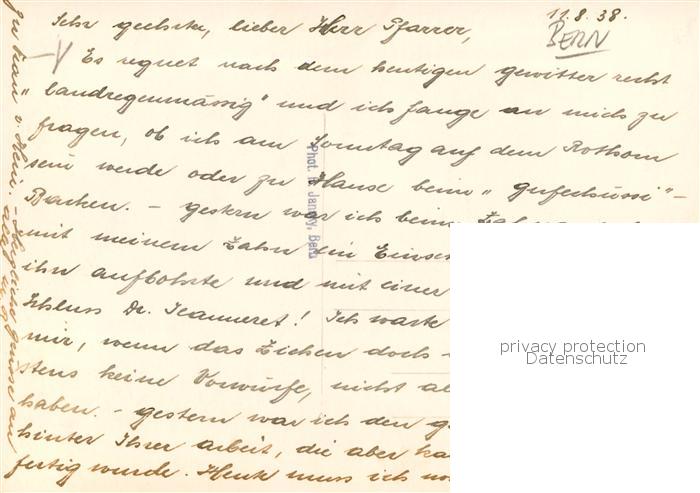 11.8.38.
BERN
Sehr geehrte, lieber Herr Pfarrer,
Es regnet nach dem heutigen gewitter recht
"landregenmässig" und ich fange an mich zu
fragen, ob ich am Sonntag auf dem Rothorn
sein werde oder zu Hause beim
Backen. - gestern war ich beim
mit meinem Zahn ein
ihn aufbohrte und mit einer
Schluss Dr. Jeanneret! Ich warte
mir, wenn das Ziehen doch
stens keine Vorwürfe, nicht al
haben. - gestern war ich den g
hinter Ihrer arbeit, die aber
fertig wurde. Heute muss ich no
Phot. Jansky, Bern
privacy protection
Datenschutz